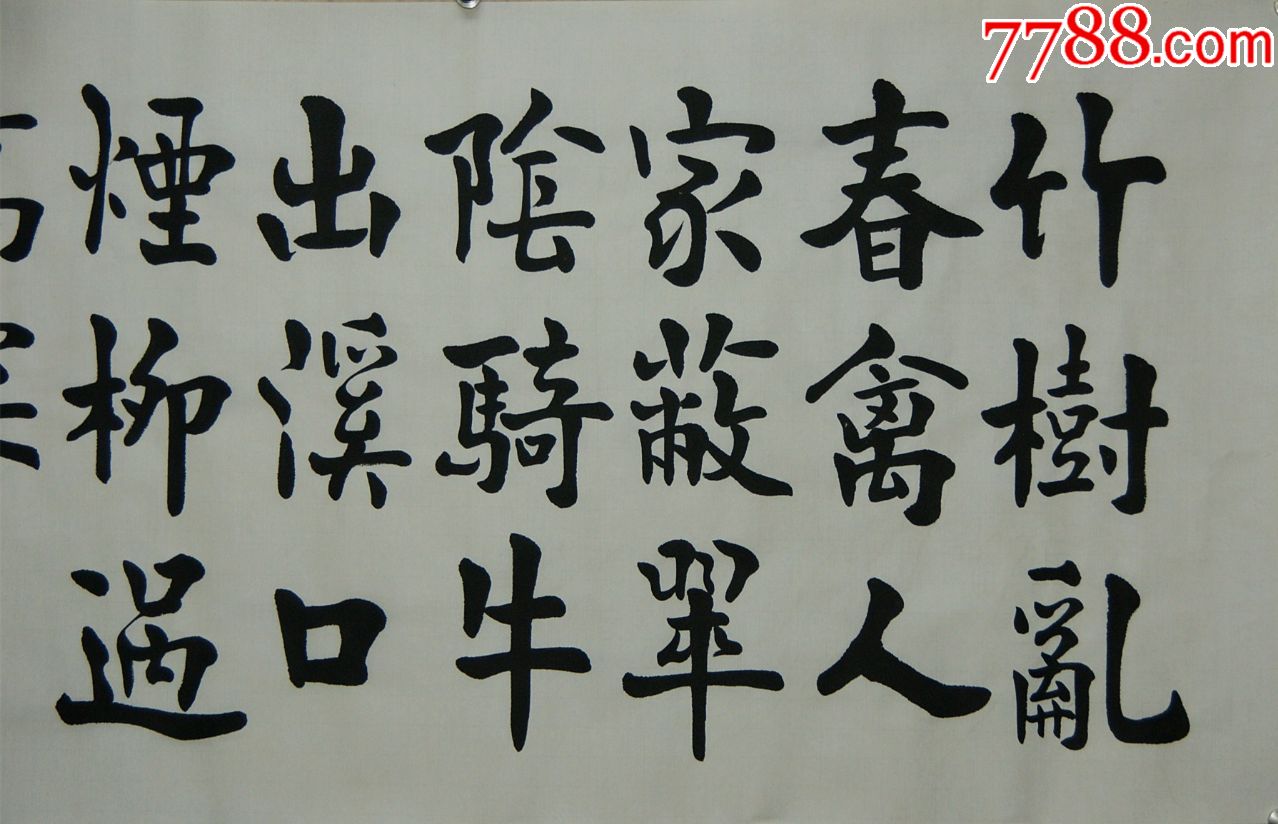 7788.com
竹樹亂
春禽人
家蔽翠
陰騎牛
出溪口
煙柳過